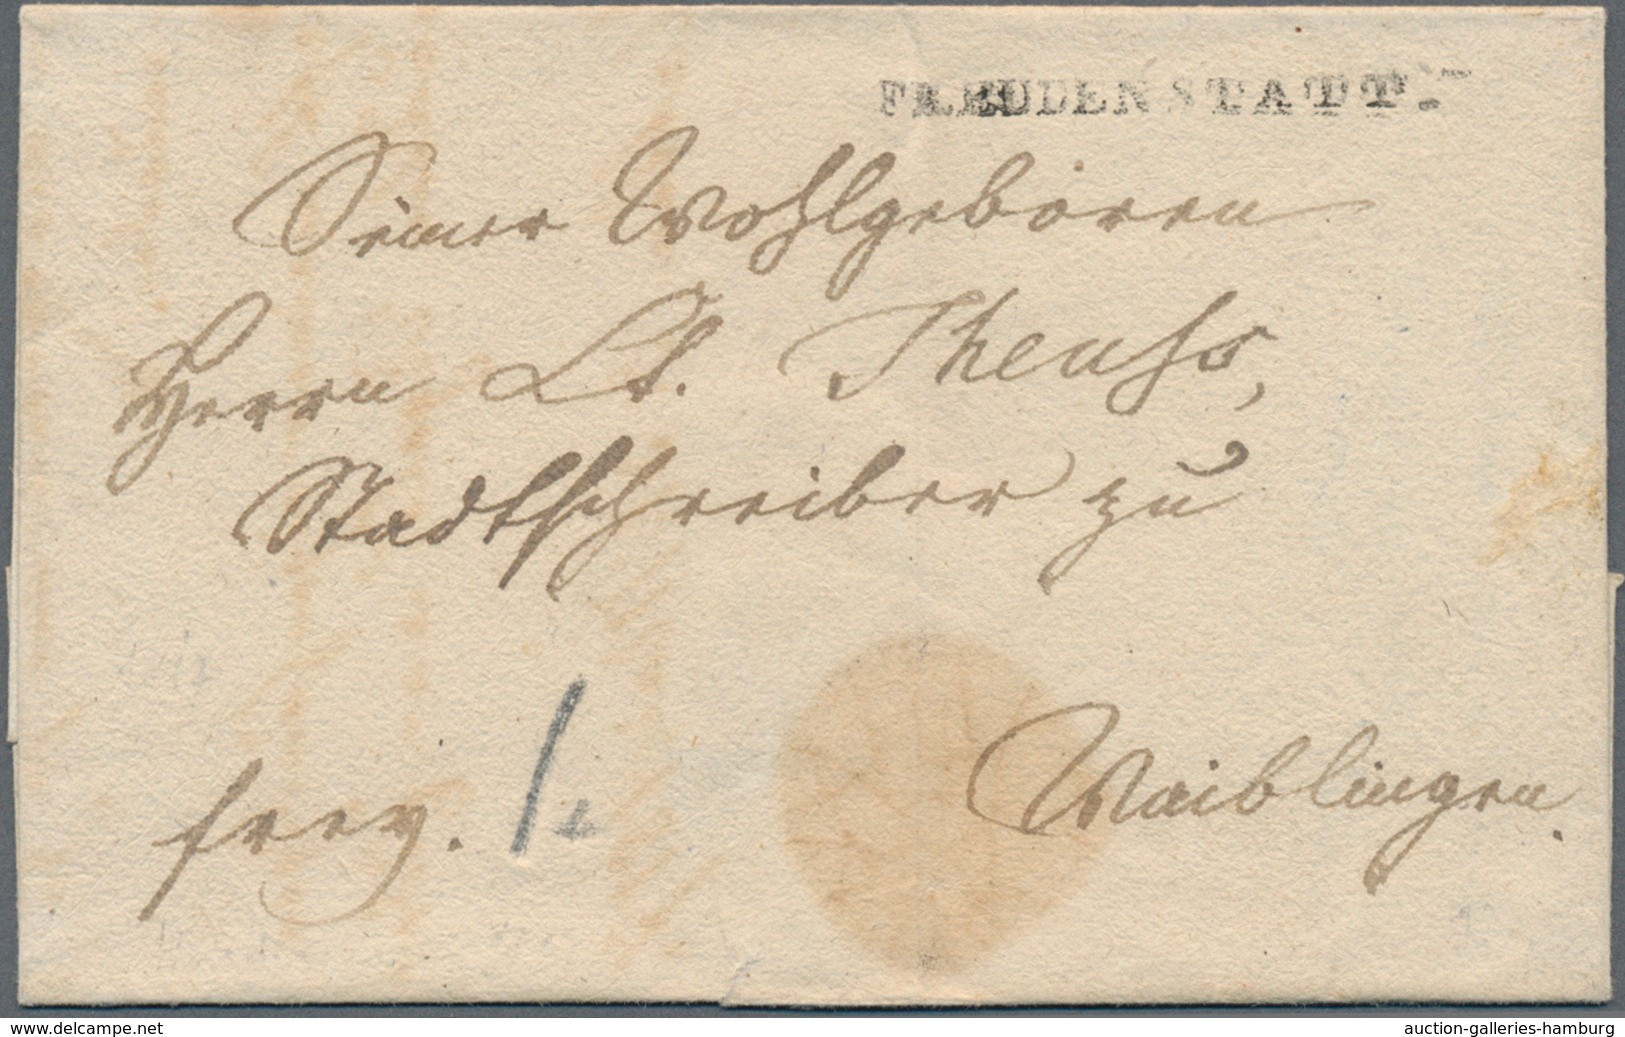 FREUDENSTATT.
Seiner Wohlgeboren
Herrn Lt. Theuss,
Stadtschreiber zu
Waiblingen.
frey.
www.delcampe.net
auction-galleries-hamburg